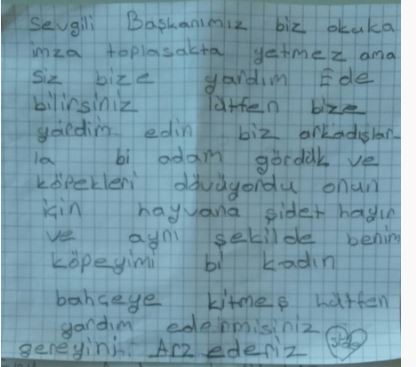 Sevgili Başkanımız biz okuka
imza toplasakta yetmez ama
siz bize yardım Ede
bilirsiniz lütfen bize
yardim edin biz arkadışlar-
la bi adam gördük ve
köpekleri dövüyordu onun
için hayvana şidet hayır
ve aynı şekilde benim
köpeyimi bi kadın
bahçeye kitmeş lütfen
yardım edermisiniz
gereyini Arz ederiz